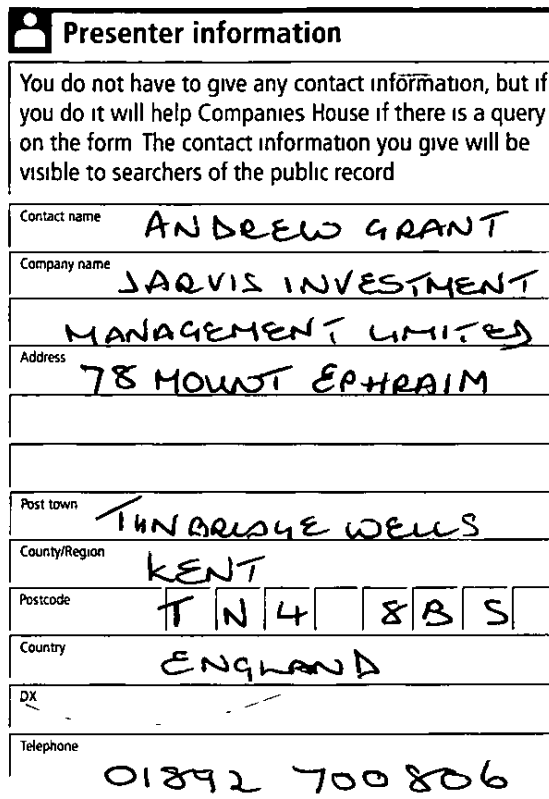 Presenter information
You do not have to give any contact information, but if
you do it will help Companies House if there is a query
on the form The contact information you give will be
visible to searchers of the public record
Contact name ANDREW GRANT
Company name JARVIS INVESTMENT
MANAGEMENT LIMITED
Address 78 MOUNT EPHRAIM
Post town TUNBRIDGE WELLS
County/Region KENT
Postcode TN4 8BS
Country ENGLAND
DX
Telephone 01892 700806